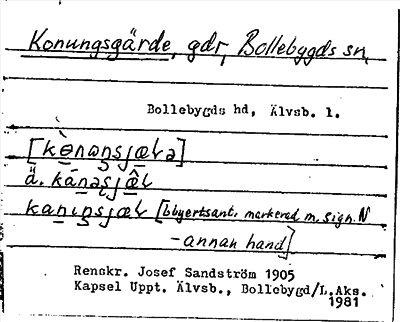 Konungsgärde, gdr, Bollebygds sn,
Bollebygds hd, Älvsb. l.
ä.
[bbyertsant. markerad m. sign. N
-annan hand]
Renskr. Josef Sandström 1905
Kapsel Uppt. Älvsb., Bollebygd/L.Aks.
1981